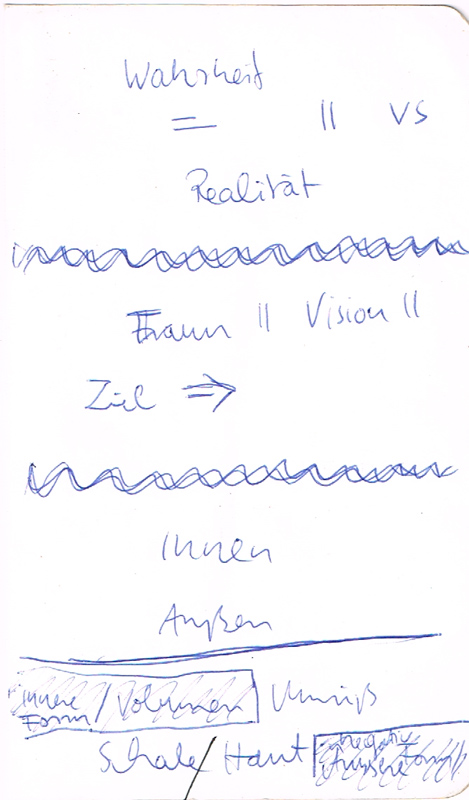 Wahrheit
= || VS
Realität
Traum || Vision ||
Ziel ⇒
Innen
Außen
Innere Form / Volumen Umriß
Schale / Haut negative Äussere Form